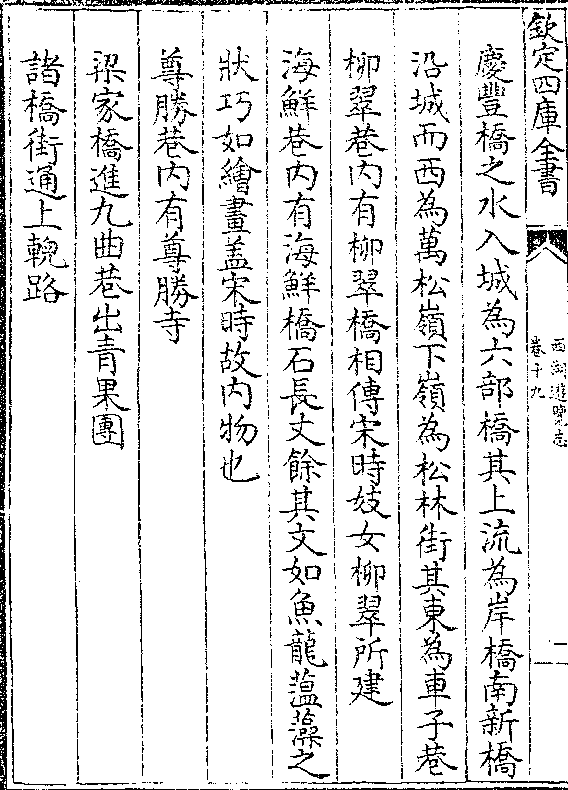 欽定四庫全書
西湖遊覽志
卷十九
二
慶豐橋之水入城為六部橋其上流為岸橋南新橋
沿城而西為萬松嶺下嶺為松林街其東為車子巷
柳翠巷内有柳翠橋相傳宋時妓女柳翠所建
海鮮巷内有海鮮橋石長丈餘其文如魚龍薀藻之
狀巧如繪畫盖宋時故内物也
尊勝巷内有尊勝寺
梁家橋進九曲巷出青果團
諸橋街通上輗路